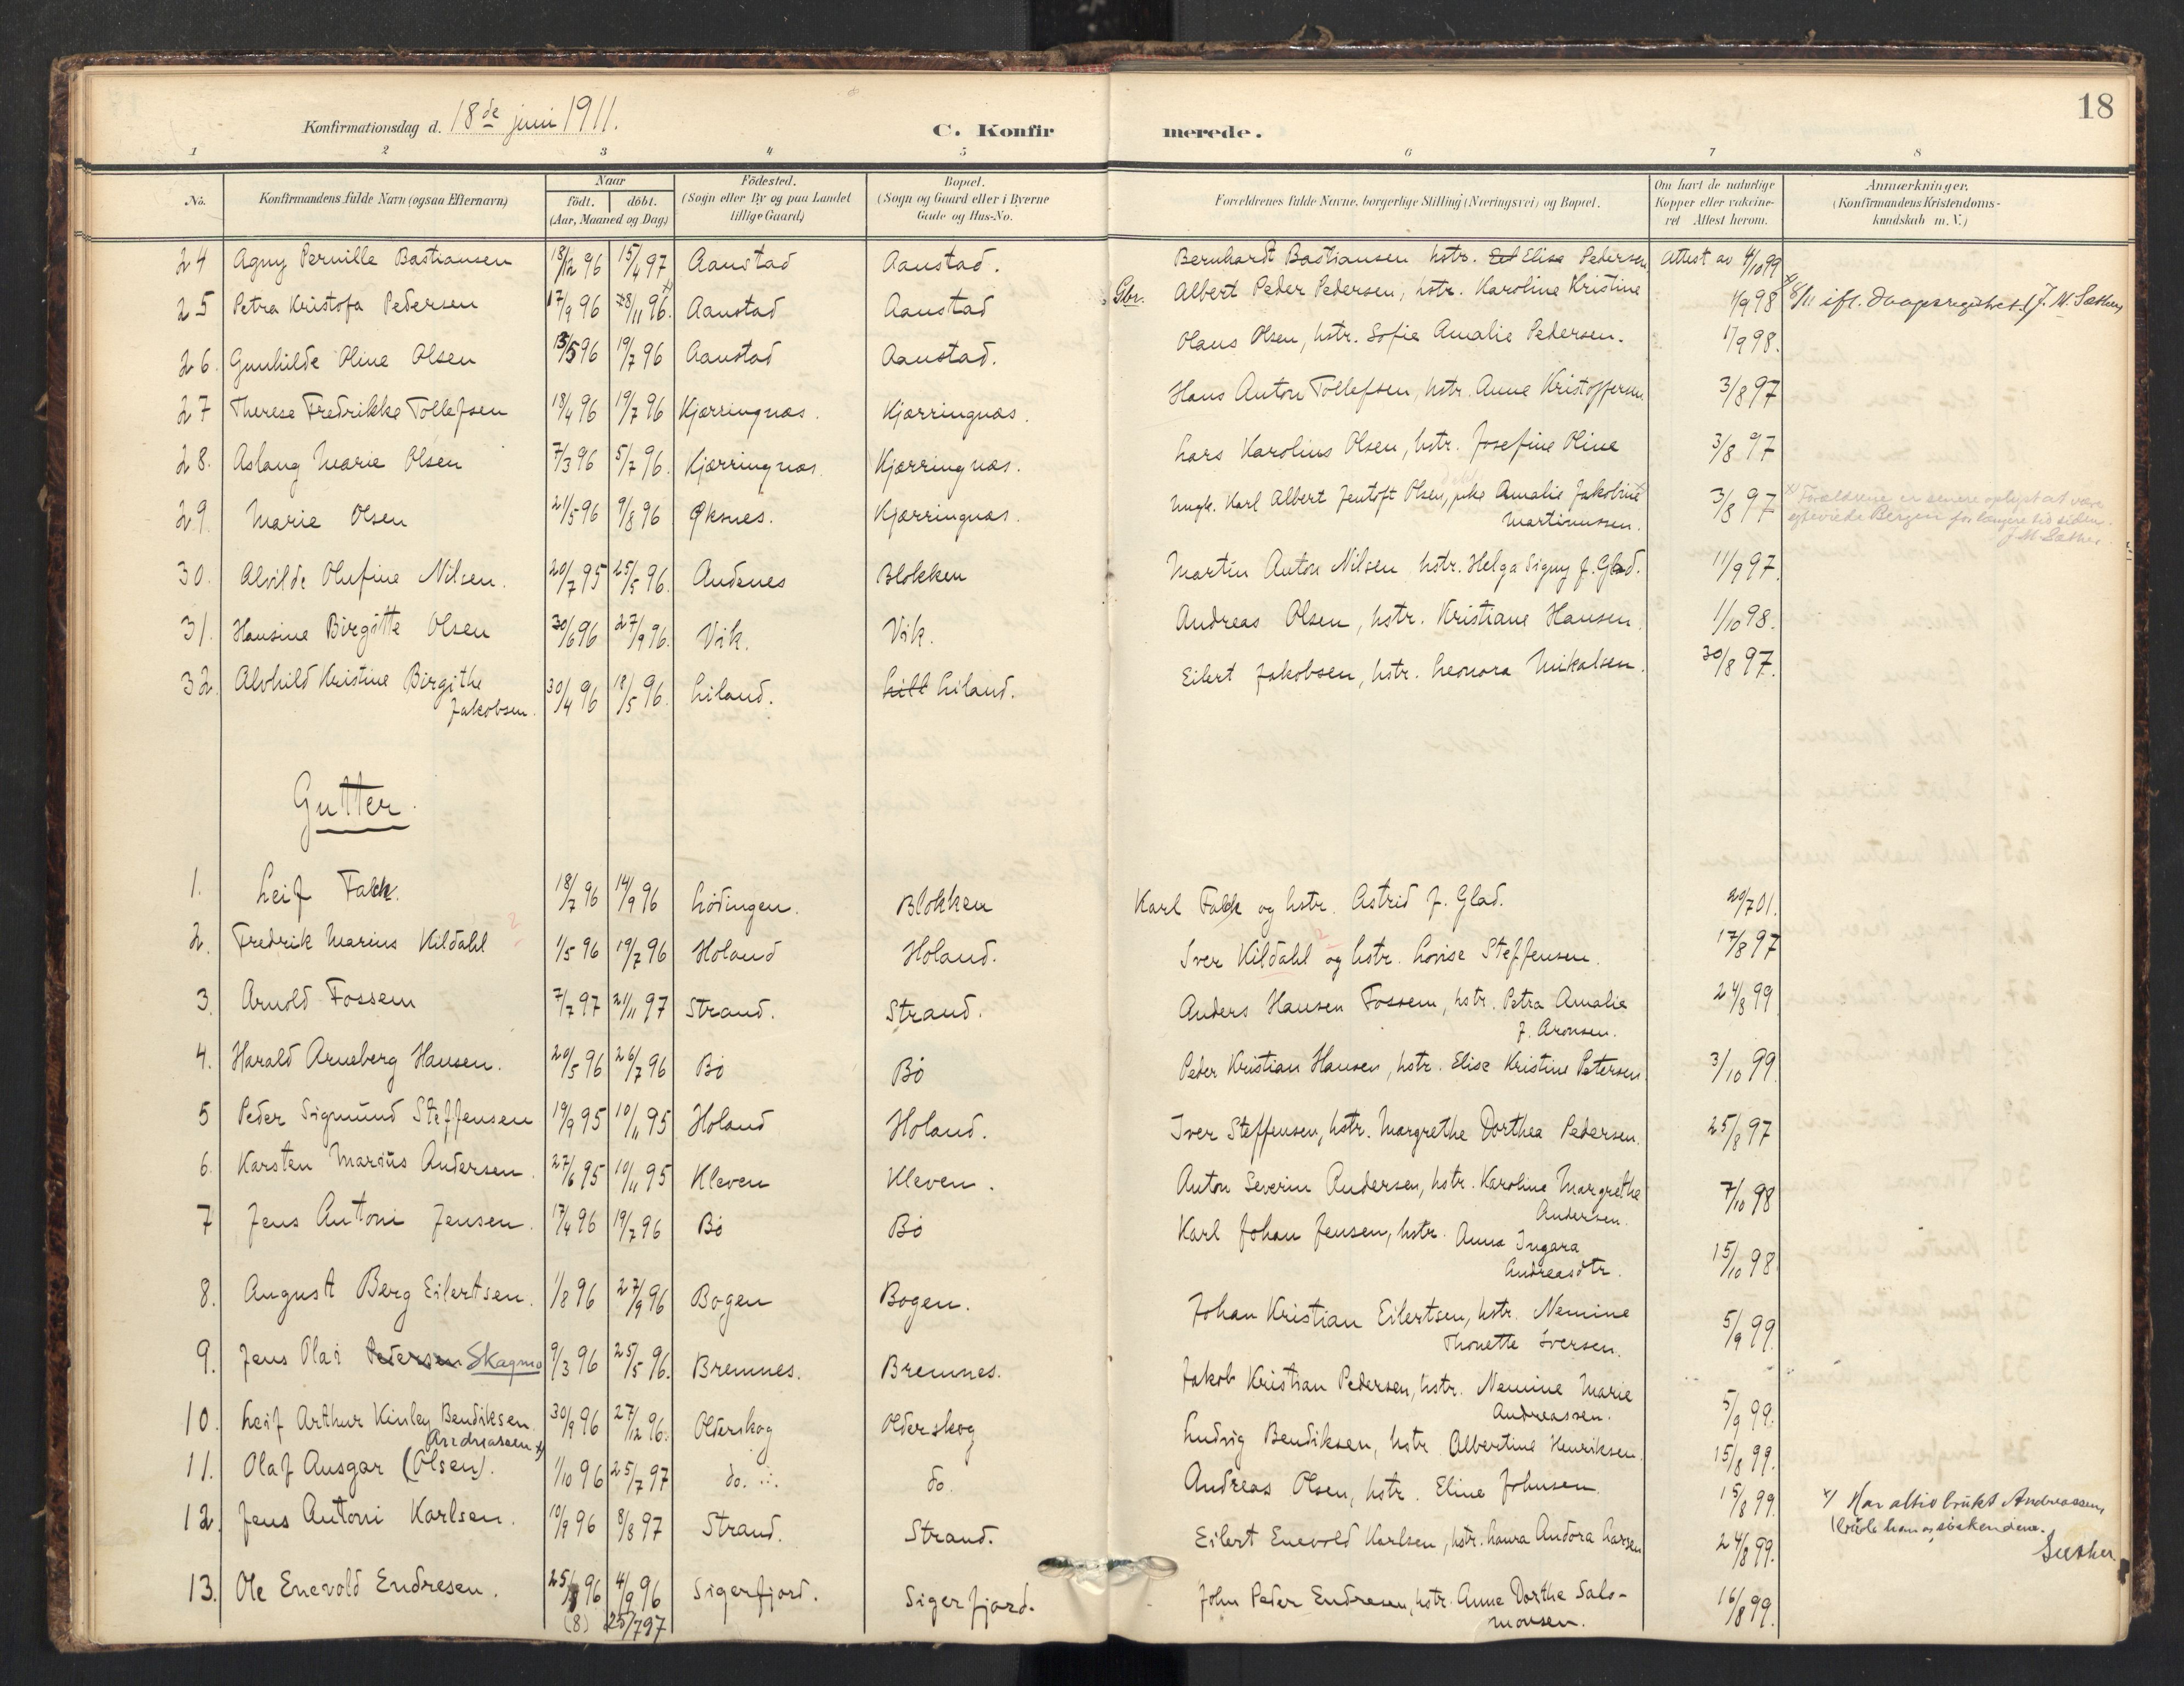 18
Konfirmationsdag d. 18de juni 1911. C. Konfirmerede.
1 2 3 4 5 6 7 8
No. Konfirmandens fulde Navn (ogsaa Efternavn) Naar født. døbt. (Aar, Maaned og Dag) Fødested. (Sogn eller By og paa Landet tillige Gaard) Bopæl. (Sogn og Gaard eller i Byerne Gade og Hus-No. Forældrenes fulde Navne, borgerlige Stilling (Næringsvei) og Bopæl. Om havt de naturlige Kopper eller vakcineret Attest herom. Anmærkninger. (Konfirmandens Kristendomskundskab m. V.)
24 Agny Pernille Bastiansen 18/12 96 15/4 97 Aanstad Aanstad. Bernhardt Bastiansen hstr. Elise Pedersen Attest av 4/10 99
25 Petra Kristofa Pedersen 17/9 96 28/11 96. x) Aanstad Aanstad Gbr. Albert Peder Pedersen, hstr. Karoline Kristine 1/9 98 x) 8/11 ifl. daapsregistret. J. M. Sæther
26. Gunhilde Oline Olsen 13/5 96 19/7 96 Aanstad Aanstad. Olaus Olsen, hstr. Sofie Amalie Pedersen. 1/9 98.
27 Therese Fredrikke Tollefsen 13/4 96 19/7 96 Kjærringnæs. Kjærringnæs. Hans Anton Tollefsen, hstr. Anne Kristoffersen 3/8 97
28. Aslaug Marie Olsen 7/3 96 5/7 96. Kjærringnæs. Kjærringnæs. Lars Karolius Olsen, hstr. Josefine Oline 3/8 97
29. Marie Olsen 21/5 96 9/8 96 Øksnes. Kjærringnæs. Ungk. Karl Albert Jentoft Olsen, pike Amalie Jakobine x) 3/8 97 x) Forældrene er senere oplyst at være
Martinussen. egteviede Bergen for længere tid siden.
J. M. Sæther
30. Alvilde Olufine Nilsen. 20/7 95 25/5 96. Andenes Blokken Martin Anton Nilsen hstr. Helga Signy f. Glad. 11/9 97.
31. Hansine Birgitte Olsen 30/6 96 27/9 96. Vik. Vik. Andreas Olsen, hstr. Kristiane Hansen. 1/10 98.
32. Alvhild Kristine Birgithe 30/4 96 18/5 96. Liland. Liland. Eilert Jakobsen, hstr. Leonora Mikalsen. 30/8 97.
Jakobsen.
Gutter.
1. Leif Falck. 18/7 96 14/9 96 Lödingen. Blokken Karl Falck og hstr. Astrid f. Glad. 20/7 01.
2. Fredrik Marius Kildahl 1/5 96 19/7 96 Holand Holand. Iver Kildahl og hstr. Lovise Steffensen. 17/8 97
3. Arnold Fossem 7/7 97 21/11 97 Strand. Strand. Anders Hansen Fossem, hstr. Petra Amalie 24/8 99
f. Aronsen.
4. Harald Arneberg Hansen. 20/5 96 26/7 96 Bö Bö Peder Kristian Hansen, hstr. Elise Kristine Petersen. 3/10 99.
5 Peder Sigmund Steffensen 19/9 95 10/11 95 Holand Holand. Iver Steffensen, hstr. Margrethe Dorthea Pedersen. 25/8 97
6. Karsten Marius Andersen. 27/6 95 10/11 95 Kleven Kleven. Anton Severin Andersen, hstr. Karoline Margrethe 7/10 98
Andersen.
7 Jens Antoni Jensen. 17/4 96 19/7 96 Bö Bö Karl Johan Jensen, hstr. Anna Ingara 15/10 98.
Andreasdtr.
8. August Berg Eilertsen. 1/8 96 27/9 96 Bogen Bogen. Johan Kristian Eilertsen, hstr. Nemine 5/9 99.
Thonette Iversen.
9. Jens Olai Pedersen Skagmo 9/3 96 25/5 96. Bremnes. Bremnes. Jakob Kristian Pedersen, hstr. Nemine Marie 5/9 99.
Andreassen.
10. Leif Arthur Kinley Bendiksen. 30/9 96 27/12 96. Olderskog Olderskog Ludvig Bendiksen, hstr. Albertine Henriksen. 15/8 99.
Andreassen x)
11. Olaf Ansgar (Olsen). 1/10 96 25/7 97 do. do. Andreas Olsen, hstr. Eline Johnsen. 15/8 99. x) Har altid brukt Andreassen,
12. Jens Antoni Karlsen. 10/9 96 8/8 97 Strand. Strand. Eilert Enevold Karlsen, hstr. Laura Andora Larsen 24/8 99. baade han og söskendene.
Sæther
13. Ole Enevold Endresen. 25/8 96 4/9 96 Sigerfjord. Sigerfjord. John Peder Endresen, hstr. Anne Dorthe Salo- 16/8 99.
(8) 25/7 97 monsen.